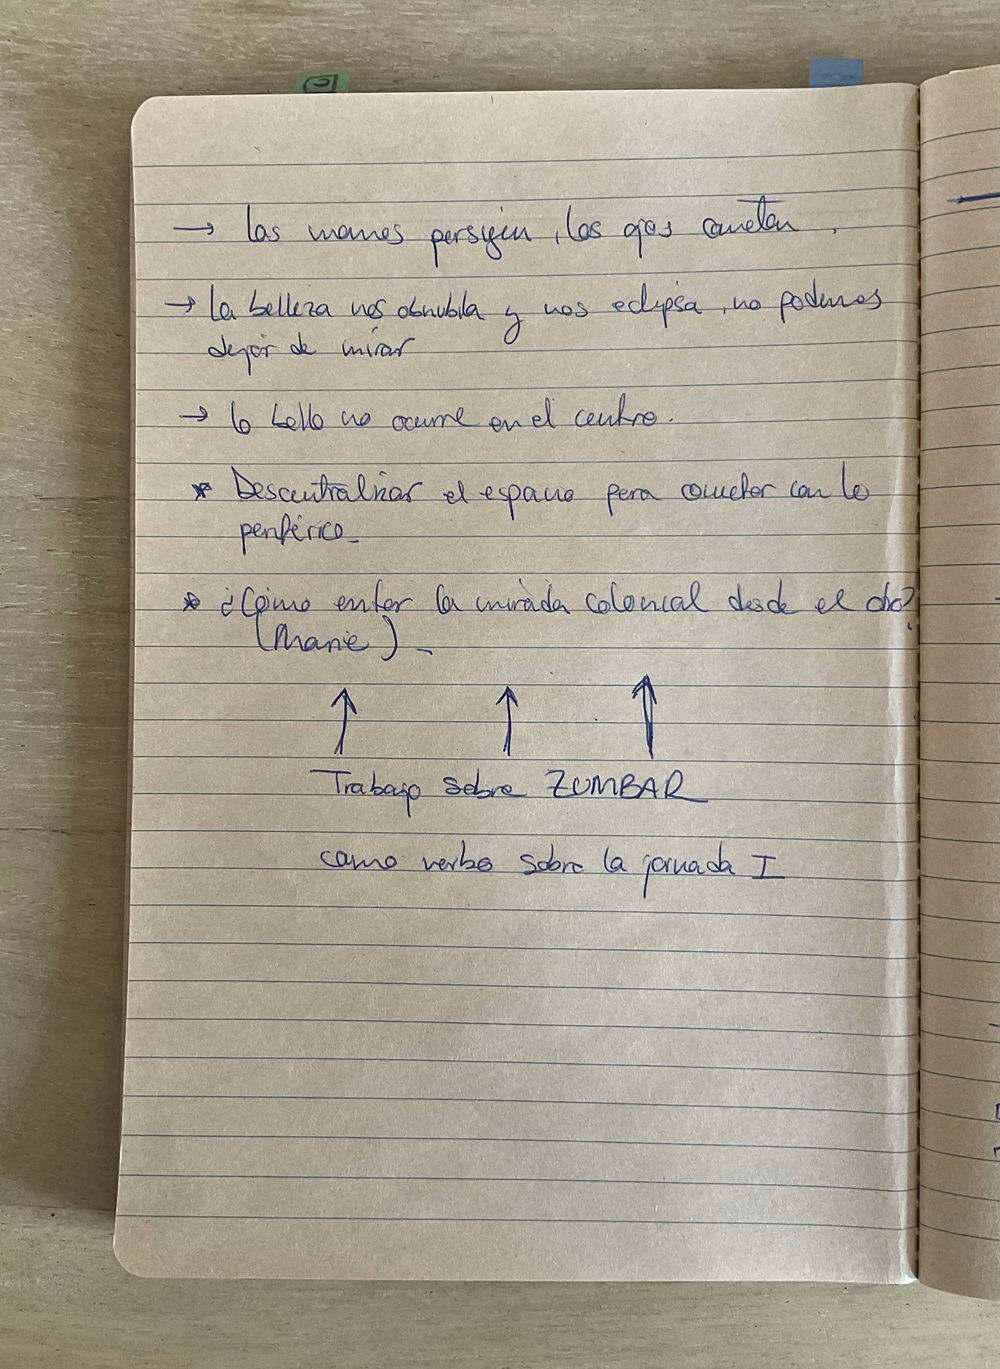 → Las manos persiguen, los ojos conectan.
→ La belleza nos obnubila y nos eclipsa, no podemos
dejar de mirar
→ lo bello no ocurre en el centro.
* Descentralizar el espacio para conectar con lo
periférico_
* ¿Cómo evitar la mirada colonial desde el ojo?
(Marie)_
Trabajo sobre ZUMBAR
como verbo sobre la jornada I